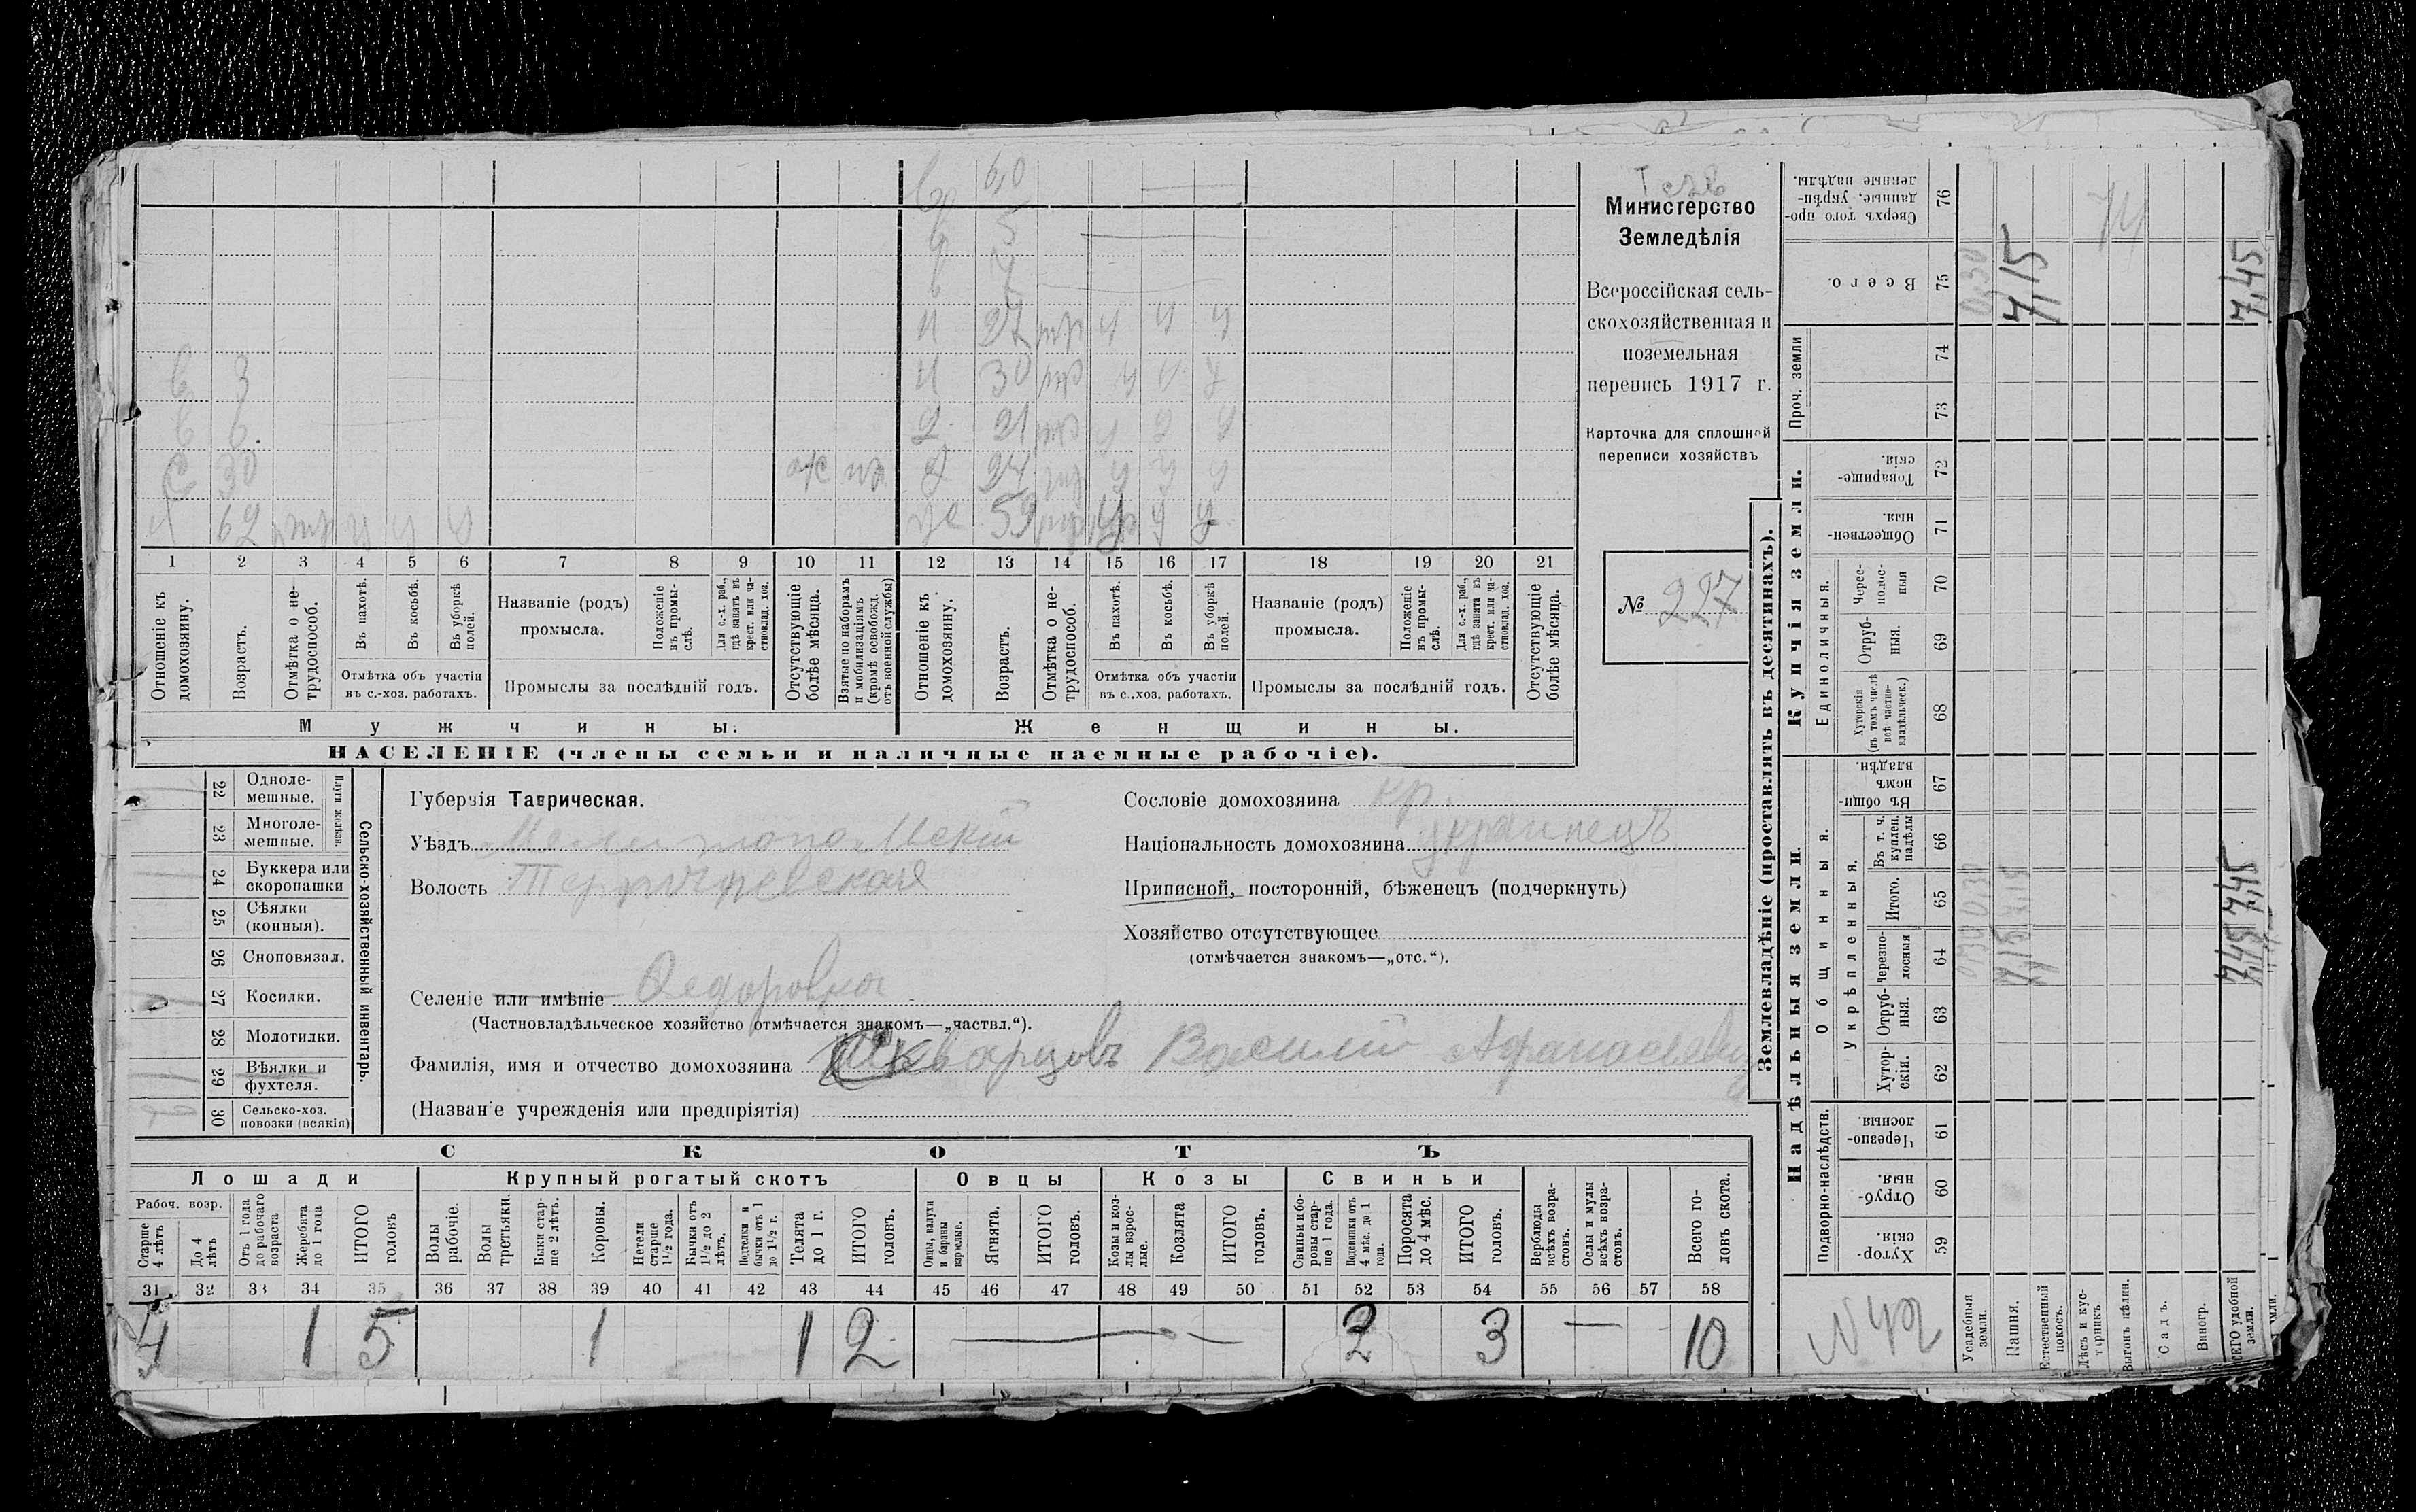 в 6,0
в 5
в 7
н 27 тр ч ч ч
в 3 н 30 тр ч ч ч
в 6 д 21 тр у у у
с 30 ж д 24 тр у у у
62 у у у ж 59 у у у
1 2 3 4 5 6 7 8 9 10 11 12 13 14 15 16 17 18 19 20 21
Отношеніе къ домохозяину.
Возрастъ.
Отмѣтка о нетрудоспособ.
Въ пахотѣ.
Въ косьбѣ.
Въ уборкѣ полей.
Отмѣтка объ участіи въ с.-хоз. работахъ.
Названіе (родъ) промысла.
Положеніе въ промыслѣ.
Для с.-х. раб., гдѣ занятъ въ крест. или частновлад. хоз.
Промыслы за послѣдній годъ.
Отсутствующіе болѣе мѣсяца.
Взятые по наборамъ и мобилизаціямъ (кромѣ освобожд. отъ военной службы)
Отношеніе къ домохозяину.
Возрастъ.
Отмѣтка о нетрудоспособ.
Въ пахотѣ.
Въ косьбѣ.
Въ уборкѣ полей.
Отмѣтка объ участіи въ с.-хоз. работахъ.
Названіе (родъ) промысла.
Положеніе въ промыслѣ.
Для с.-х. раб., гдѣ занята въ крест. или частновлад. хоз.
Промыслы за послѣдній годъ.
Отсутствующіе болѣе мѣсяца.
Мужчины.
Женщины.
НАСЕЛЕНІЕ (члены семьи и наличные наемные рабочіе).
Министерство
Земледѣлія
Всероссійская сель-
скохозяйственная и
поземельная
перепись 1917 г.
Карточка для сплошной
переписи хозяйствъ
№ 227
22 Одноле-мешные.
23 Многоле-мешные.
Плуги желѣзн.
24 Буккера или скоропашки
25 Сѣялки (конныя).
26 Сноповязал.
27 Косилки.
28 Молотилки.
29 Вѣялки и фухтеля.
30 Сельско-хоз. повозки (всякія)
Сельско-хозяйственный инвентарь.
Губернія Таврическая.
Уѣздъ Мелитопольскій
Волость
Селеніе или имѣніе Федоровка
(Частновладѣльческое хозяйство отмѣчается знакомъ—„частвл.“).
Фамилія, имя и отчество домохозяина Скварцовъ Василій Афанасьевич
(Названіе учрежденія или предпріятія)
Сословіе домохозяина кр.
Національность домохозяина украинецъ
Приписной, посторонній, бѣженецъ (подчеркнуть)
Хозяйство отсутствующее
(отмѣчается знакомъ—„отс.“).
СКОТЪ
Лошади
Крупный рогатый скотъ
Овцы
Козы
Свиньи
Рабоч. возр.
Старше 4 лѣтъ
До 4 лѣтъ
Отъ 1 года до рабочаго возраста
Жеребята до 1 года
ИТОГО головъ
Волы рабочіе.
Волы третьяки.
Быки старше 2 лѣтъ.
Коровы.
Нетели старше 1 1/2 года.
Бычки отъ 1 1/2 до 2 лѣтъ.
Подтелки и бычки отъ 1 до 1 1/2 г.
Телята до 1 г.
ИТОГО головъ.
Овцы, валухи и бараны взрослые.
Ягнята.
ИТОГО головъ.
Козы и козлы взрослые.
Козлята
ИТОГО головъ.
Свиньи и боровы старше 1 года.
Подсвинки отъ 4 мѣс. до 1 года.
Поросята до 4 мѣс.
ИТОГО головъ.
Верблюды всѣхъ возрастовъ.
Ослы и мулы всѣхъ возрастовъ.
Всего головъ скота.
31 32 33 34 35 36 37 38 39 40 41 42 43 44 45 46 47 48 49 50 51 52 53 54 55 56 57 58
4 1 5 1 1 2 — 2 3 — 10
Землевладѣніе (проставлять въ десятинахъ).
Надѣльныя земли.
Купчія земли.
Проч. земли
Подворно-наслѣдств.
Общинныя.
Укрѣпленныя.
Единоличныя.
59 Хуторскія.
60 Отрубныя.
61 Черезполосныя
62 Хуторскія.
63 Отрубныя.
64 Черезполосныя
65 Итого.
66 Въ т. ч. куплен. надѣлы
67 Въ общинномъ владѣн.
68 Хуторскія (въ томъ числѣ всѣ частновладѣльческ.)
69 Отрубныя.
70 Чересполосныя
71 Общественныя.
72 Товарищескія.
73
74
75 Всего.
76 Сверхъ того проданные, укрѣпленные надѣлы.
Усадебныя земли. 0,30 0,30 0,30
Пашня. 7,15 7,15 7,15
Естественный покосъ.
Лѣсъ и кустарникъ
Выгонъ цѣлин.
Садъ.
Виногр.
ВСЕГО удобной земли. 7,45 7,45 7,45
N 42
74